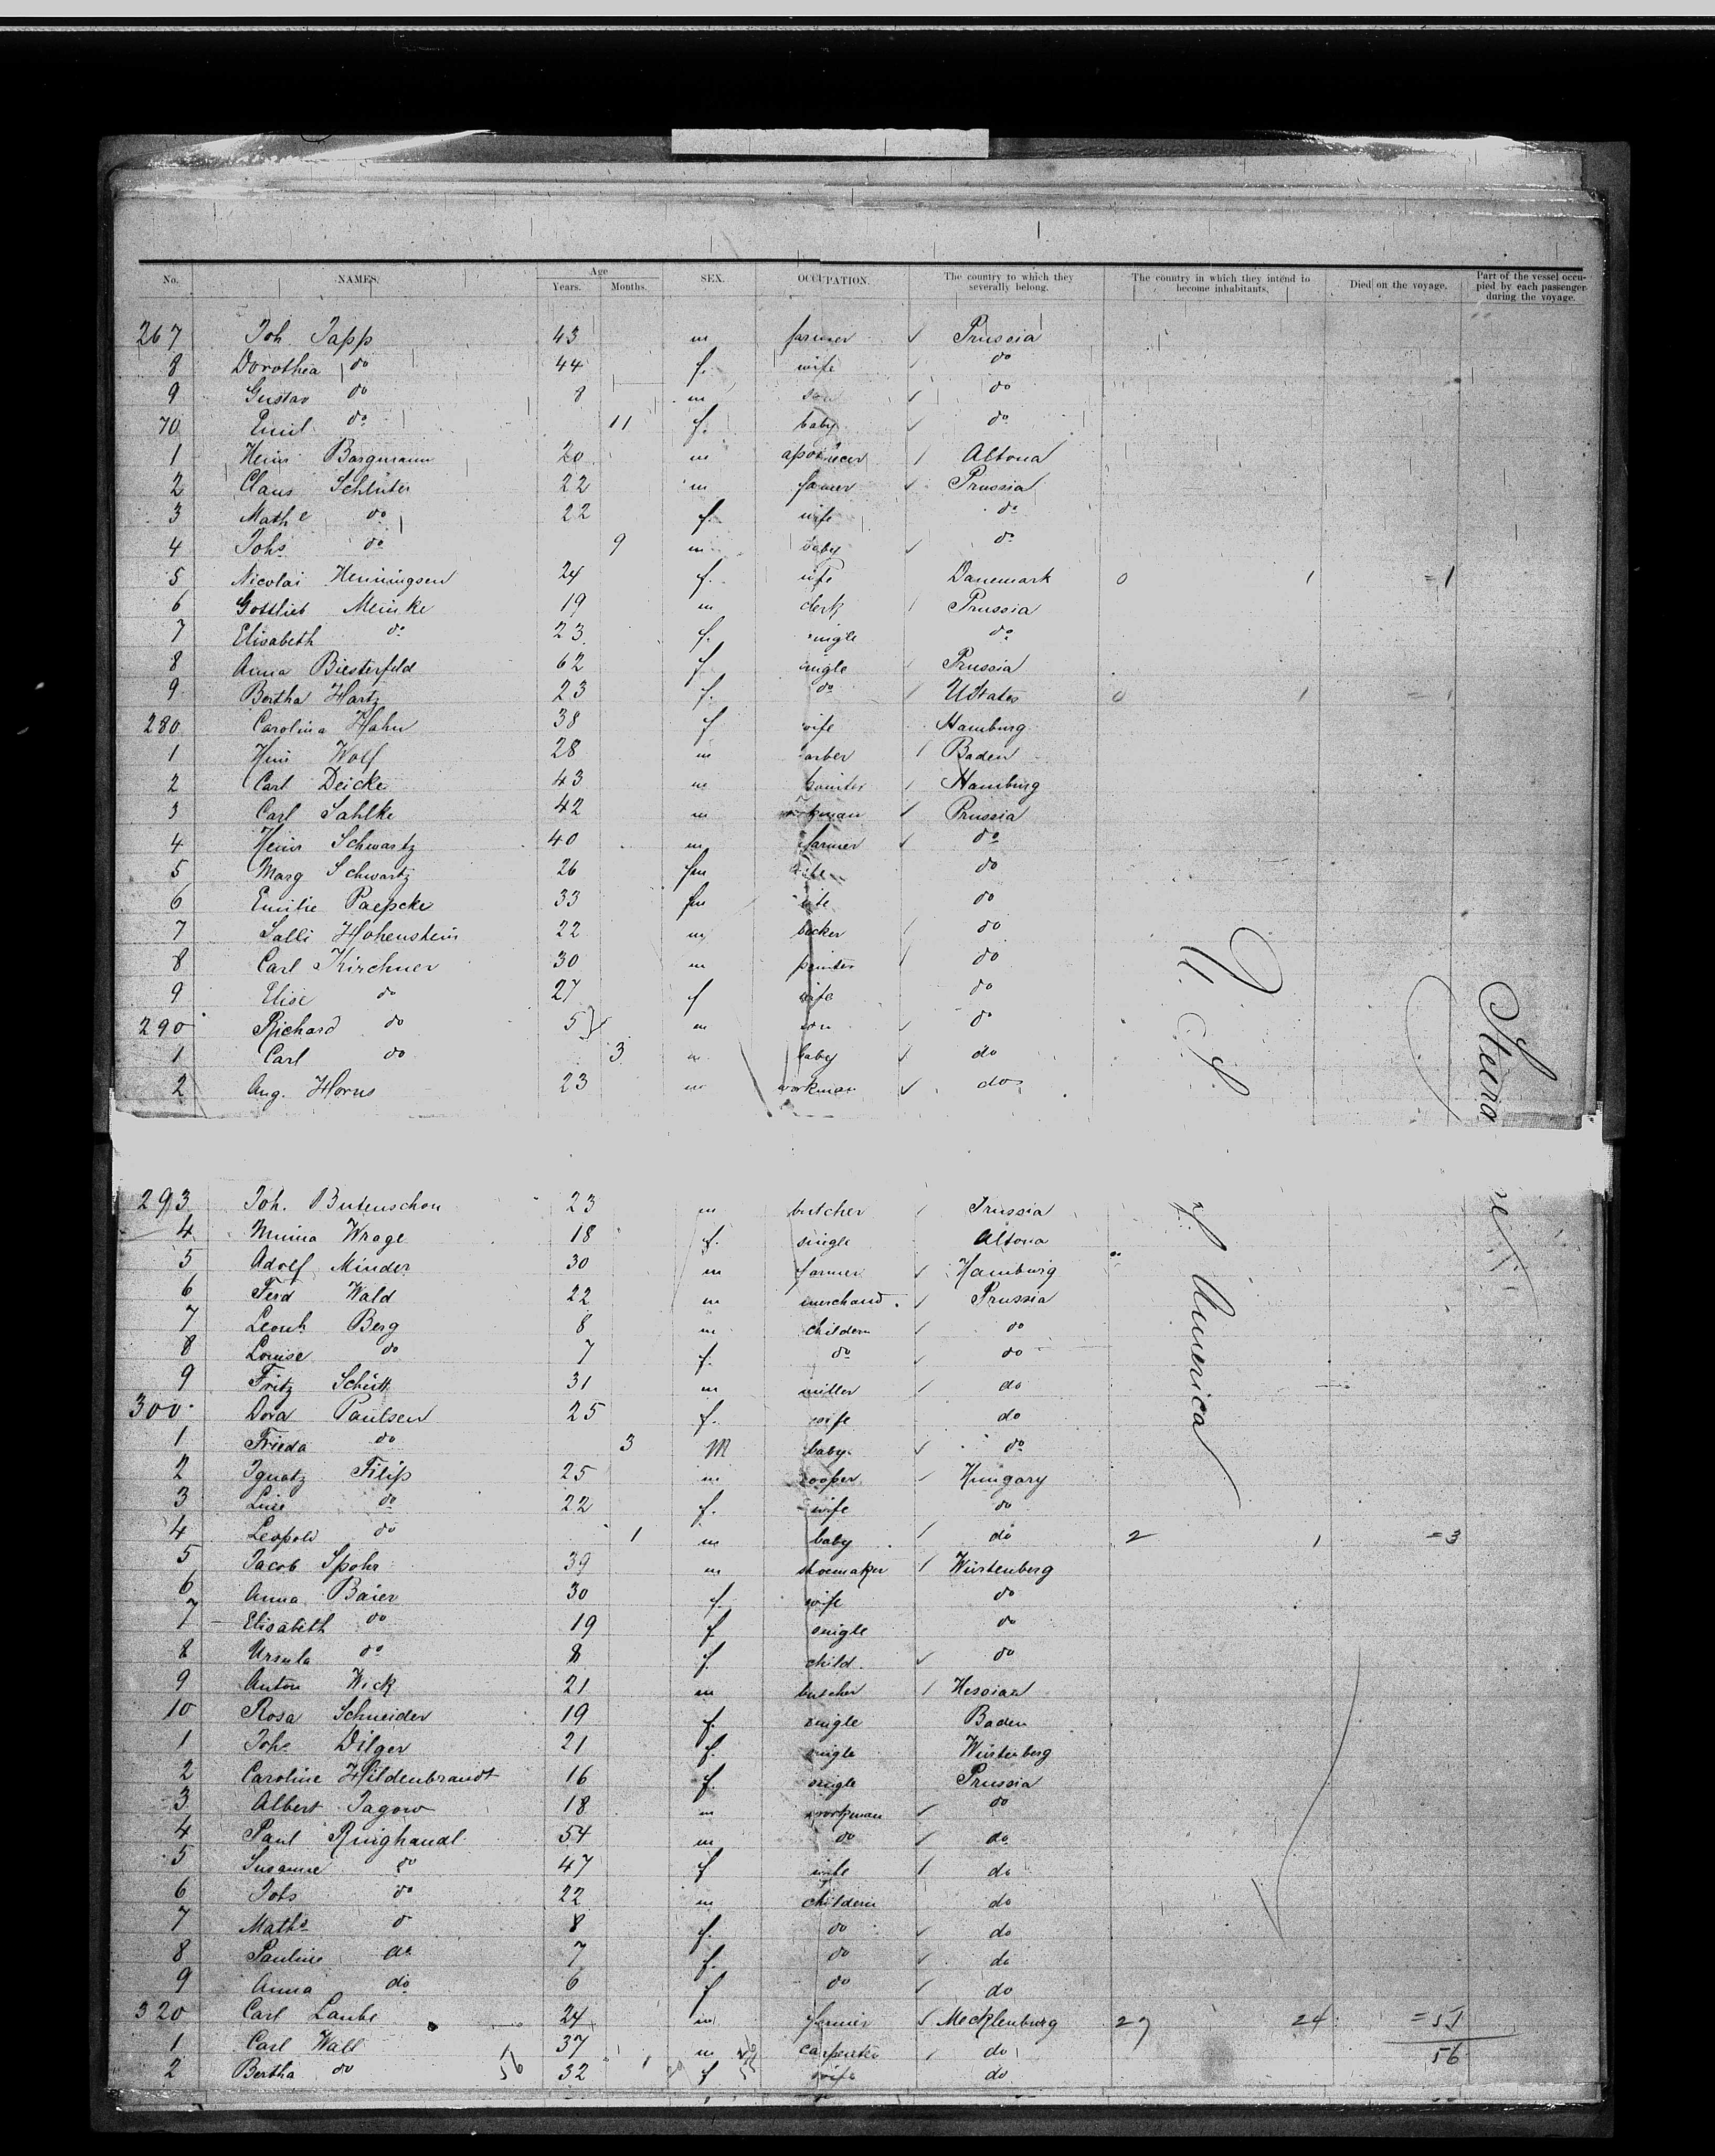 No. NAMES. Age Years. Months. SEX. OCCUPATION. The country to which they severally belong. The country in which they intend to become inhabitants. Died on the voyage. Part of the vessel occupied by each passenger during the voyage.
267 Joh Japp 43 m farmer Prussia
8 Dorothea do 44 f. wife do
9 Gustav do 8 m son do
70 Emil do 11 f. baby do
1 Heinr Bargmann 20 m Altona
2 Claus Schlüter 22 m farmer Prussia
3 Mathe do 22 f. wife do
4 Johs do 9 m baby do
5 Nicolai Henningsen 24 f. wife Danemark 0 1 =1
6 Gottlieb Meinke 19 m clerk Prussia
7 Elisabeth do 23 f. single do
8 Anna Biesterfeld 62 f single Prussia
9 Bertha Hartz 23 f. do UStates 0 1 = 1
280 Carolina Hahn 38 f wife Hamburg
1 Heinr Wolf 28 m barber Baden
2 Carl Deicke 43 m Hamburg
3 Carl Sahlke 42 m workman Prussia
4 Heinr Schwartz 40 m farmer do
5 Marg Schwartz 26 fm wife do
6 Emilie Paepcke 33 fm wife do
7 Salli Hohenstein 22 m becker do
8 Carl Kirchner 30 m painter do
9 Elise do 27 f wife do
290 Richard do 5 m son do
1 Carl do 3 m baby do
2 Aug. Horns 23 m workman do
U. S. of America
Steerage
293 Joh. Butenschon 23 m butcher Prussia
4 Minna Wrage 18 f. single Altona
5 Adolf Minder 30 m farmer Hamburg
6 Ferd Wald 22 m merchand. Prussia
7 Leonh Berg 8 m childern do
8 Louise do 7 f. do do
9 Fritz Schütt 31 m miller do
300 Dora Paulsen 25 f. wife do
1 Frieda do 3 M baby do
2 Ignatz Filip 25 m cooper Hungary
3 Luise do 22 f. wife do
4 Leopold do 1 m baby do 2 1 =3
5 Jacob Spohr 39 m shoemaker Würtenberg
6 Anna Baier 30 f. wife do
7 Elisabeth do 19 f single do
8 Ursula do 8 f child. do
9 Anton Wick 21 m butcher Hessian
10 Rosa Schneider 19 f. single Baden
1 Johe Dilger 21 f. single Würtenberg
2 Caroline Hildenbrandt 16 f. single Prussia
3 Albert Jagow 18 m workman do
4 Paul Ringhandl 54 m do do
5 Susanne do 47 f wife do
6 Johs do 22 m childern do
7 Mathe do 8 f. do do
8 Pauline do 7 f. do do
9 Anna do 6 f do do
320 Carl Laube 24 m farmer Mecklenburg 27 24 =51
1 Carl Wall 37 m carpenter do 56
2 Bertha do 56 32 f wife do